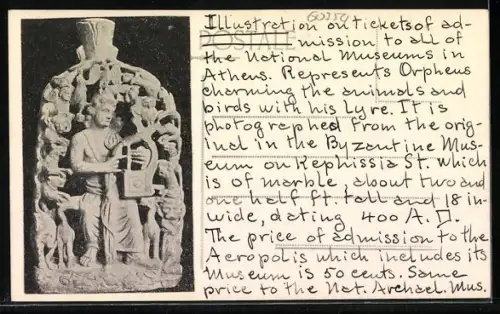 Illustration on tickets of ad-
mission to all of
POSTALE
the National Museums in
Athens. Represents Orpheus
charming the animals and
birds with his Lyre. It is
photographed from the orig-
inal in the Byzantine Mus-
eum on Kephissia St. which
is of marble, about two and
one half ft. tall and 18 in-
wide, dating 400 A. D.
The price of admission to the
Acropolis which includes its
Museum is 50 cents. Same
price to the Nat. Archael. Mus.